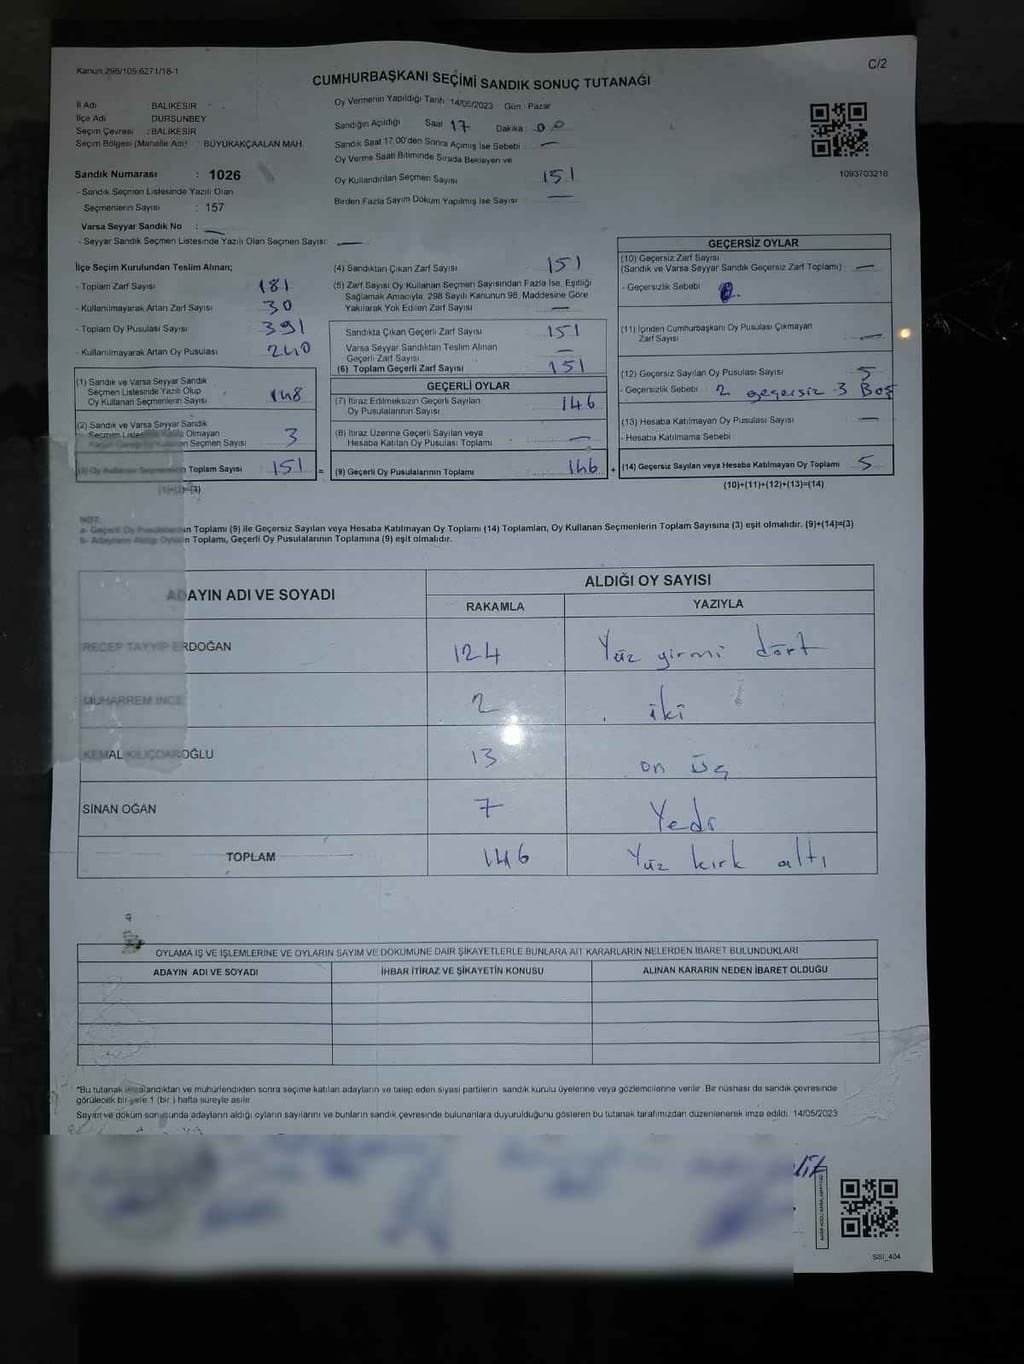 Kanun 298/105:6271/18-1
C/2
CUMHURBAŞKANI SEÇİMİ SANDIK SONUÇ TUTANAĞI
İl Adı BALIKESİR
İlçe Adı DURSUNBEY
Seçim Çevresi : BALIKESİR
Seçim Bölgesi (Mahalle Adı) BÜYÜKAKÇAALAN MAH.
Sandık Numarası : 1026
- Sandık Seçmen Listesinde Yazılı Olan
Seçmenlerin Sayısı : 157
Varsa Seyyar Sandık No : —
- Seyyar Sandık Seçmen Listesinde Yazılı Olan Seçmen Sayısı —
Oy Vermenin Yapıldığı Tarih 14/05/2023 Gün Pazar
Sandığın Açıldığı Saat 17 Dakika 00
Sandık Saat 17.00'den Sonra Açılmış İse Sebebi —
Oy Verme Saati Bitiminde Sırada Bekleyen ve
Oy Kullandırılan Seçmen Sayısı 151
Birden Fazla Sayım Döküm Yapılmış İse Sayısı —
1093703216
İlçe Seçim Kurulundan Teslim Alınan;
- Toplam Zarf Sayısı 181
- Kullanılmayarak Artan Zarf Sayısı 30
- Toplam Oy Pusulası Sayısı 391
- Kullanılmayarak Artan Oy Pusulası 240
(1) Sandık ve Varsa Seyyar Sandık
Seçmen Listesinde Yazılı Olup
Oy Kullanan Seçmenlerin Sayısı 148
(2) Sandık ve Varsa Seyyar Sandık
Seçmen Olmayan
Seçmen Sayısı 3
Toplam Sayısı 151 =
(1)+(2)=(3)
(4) Sandıktan Çıkan Zarf Sayısı 151
(5) Zarf Sayısı Oy Kullanan Seçmen Sayısından Fazla İse, Eşitliği
Sağlamak Amacıyla, 298 Sayılı Kanunun 98. Maddesine Göre
Yakılarak Yok Edilen Zarf Sayısı —
Sandıkta Çıkan Geçerli Zarf Sayısı 151
Varsa Seyyar Sandıktan Teslim Alınan
Geçerli Zarf Sayısı —
(6) Toplam Geçerli Zarf Sayısı 151
GEÇERLİ OYLAR
(7) İtiraz Edilmeksizin Geçerli Sayılan
Oy Pusulalarının Sayısı 146
(8) İtiraz Üzerine Geçerli Sayılan veya
Hesaba Katılan Oy Pusulası Toplamı —
(9) Geçerli Oy Pusulalarının Toplamı 146 +
GEÇERSİZ OYLAR
(10) Geçersiz Zarf Sayısı
(Sandık ve Varsa Seyyar Sandık Geçersiz Zarf Toplamı) —
- Geçersizlik Sebebi
(11) İçinden Cumhurbaşkanı Oy Pusulası Çıkmayan
Zarf Sayısı —
(12) Geçersiz Sayılan Oy Pusulası Sayısı 5
- Geçersizlik Sebebi 2 geçersiz 3 Boş
(13) Hesaba Katılmayan Oy Pusulası Sayısı —
- Hesaba Katılmama Sebebi
(14) Geçersiz Sayılan veya Hesaba Katılmayan Oy Toplamı 5
(10)+(11)+(12)+(13)=(14)
NOT:
a- Geçerli Oy Pusulalarının Toplamı (9) ile Geçersiz Sayılan veya Hesaba Katılmayan Oy Toplamı (14) Toplamları, Oy Kullanan Seçmenlerin Toplam Sayısına (3) eşit olmalıdır. (9)+(14)=(3)
b- Adayların Aldığı Oyların Toplamı, Geçerli Oy Pusulalarının Toplamına (9) eşit olmalıdır.
ADAYIN ADI VE SOYADI
ALDIĞI OY SAYISI
RAKAMLA YAZIYLA
RECEP TAYYİP ERDOĞAN 124 Yüz yirmi dört
MUHARREM İNCE 2 iki
KEMAL KILIÇDAROĞLU 13 on üç
SİNAN OĞAN 7 Yedi
TOPLAM 146 Yüz kırk altı
OYLAMA İŞ VE İŞLEMLERİNE VE OYLARIN SAYIM VE DÖKÜMÜNE DAİR ŞİKAYETLERLE BUNLARA AİT KARARLARIN NELERDEN İBARET BULUNDUKLARI
ADAYIN ADI VE SOYADI İHBAR İTİRAZ VE ŞİKAYETİN KONUSU ALINAN KARARIN NEDEN İBARET OLDUĞU
*Bu tutanak imzalandıktan ve mühürlendikten sonra seçime katılan adayların ve talep eden siyasi partilerin sandık kurulu üyelerine veya gözlemcilerine verilir. Bir nüshası da sandık çevresinde
görülecek bir yere 1 (bir) hafta süreyle asılır.
Sayım ve döküm sonucunda adayların aldığı oyların sayılarını ve bunların sandık çevresinde bulunanlara duyurulduğunu gösteren bu tutanak tarafımızdan düzenlenerek imza edildi. 14/05/2023
SSI_404